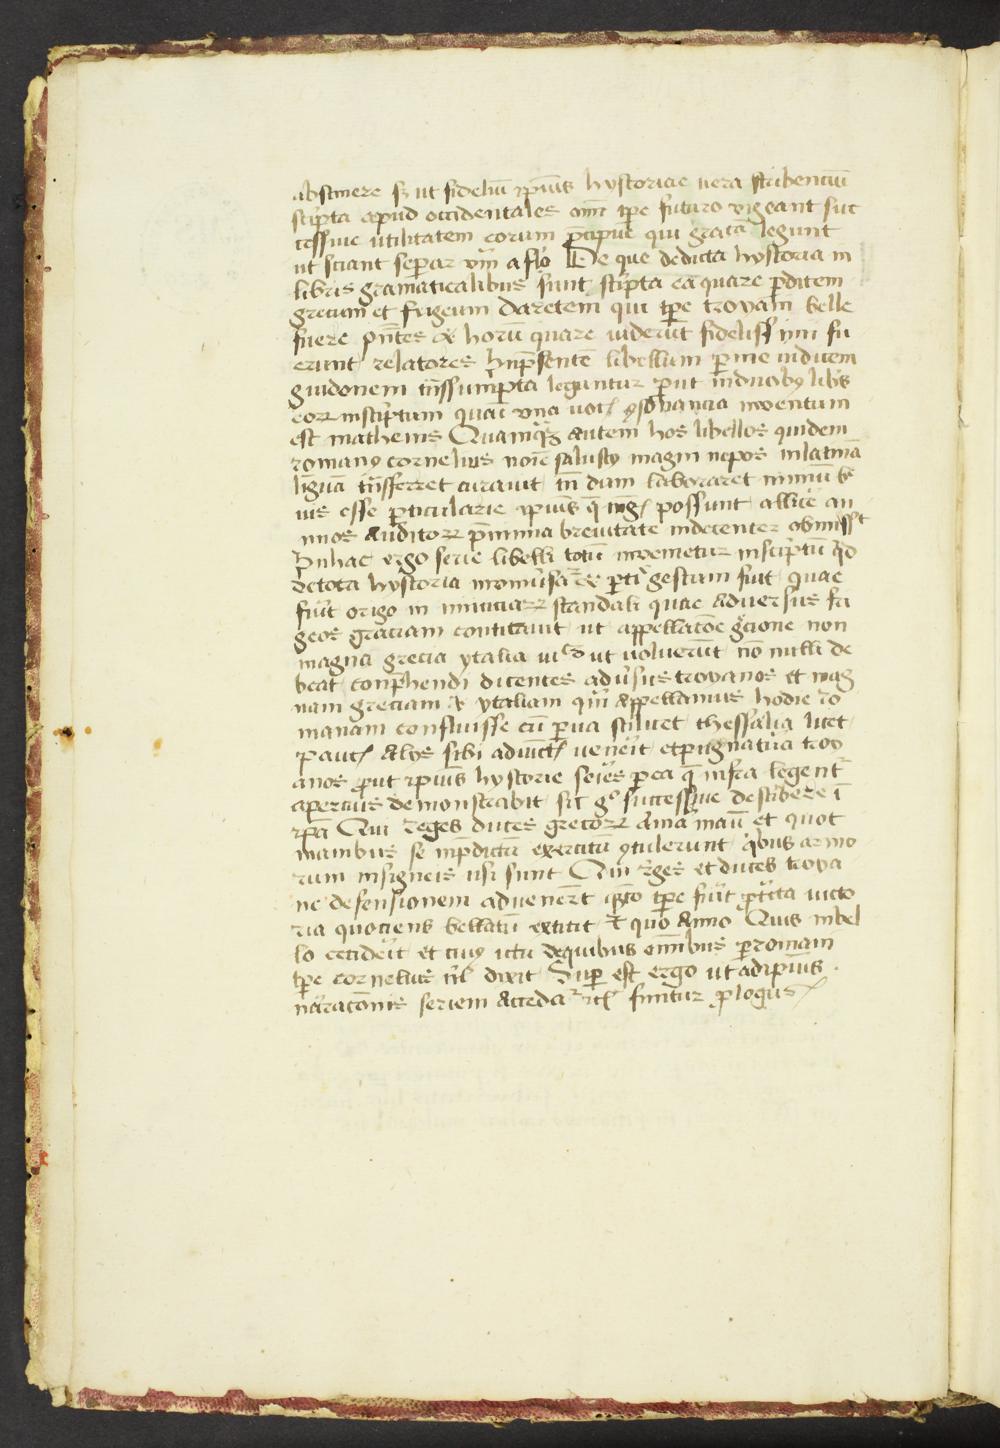 abstinere sꝫ ut fideliū ipius hystoricae uera scribenciū
scripta apud occidentales omī tp̄e futuro vigeant suc
cessiue utilitatem eorum p̄cipue qui graca legunt
ut sciant sep̄ar vm̄ a flo De que dedicta hystoria in
libris gramaticalibus sunt scripta ea quare p̄ditem
grecum et frigeum Daretem qui tp̄e troyam belle
fuere pn̄tes & horū quare uiderūt fidelissimi fu
erunt relatores hn̄psentē libellum p̄ me iudicem
guidonem tn̄ssumpta leguntur p̄ut induobꝫ libris
eoꝝ inscriptum quasi vna uocꝭ ꝯsonancia inuentum
est mathenis Quamqꝫ Autem hos libellos quidem
romanꝫ cornelius noīe salustꝫ magni nepos inlatinā
linguā tn̄sferret curauit tn̄ dum laboraret nimiū bre
uis esse p̄ticularie ipius q̄ mgꝭ possunt allicē an
nimos Auditoꝝ p̄ nimia breuitate indecenter obmisst
hnhac ergo serie libelli totū inuenietur inscriptū qd
detota hystoria inoniūsa & p̄ti gestum fuit quae
fuit origo in inimiciaꝝ scandali quae Aduersus fri
geos graciam concitauit ut appellacōe gꝛcione non
magna grecia ytalia uicꝫ ut uoluerūt nō nulli de
beat conp̄hendi dicentes adu̓sus troyanos et mag
nam greciam & ytaliam quā Appellamus hodie ro
manam confluisse cū p̄ua scilicet thessalia licet
paucꝭ Alys sibi adiūctꝭ uenerit et pugnatura troy
anos p̄ut ipius hystorie series p̄ ea q̄ infra legent
apercius demonstrabit sit gͦ successiue describere ī
ip̄a Qui reges duces grecoꝝ Amā mau et quot
manibus se inp̄dictū exercitū ꝯtulerunt qꝫbus armo
rum insigneis usi sunt Qui reges et duces troya
ne defensionem aduenert qn̄to tp̄e fuit p̄tita uicto
ria quociens bellatū extitit & quo Anno Quis inbel
lo cecidit et cuiꝫ ictu dequibus omībus p̄ romam
tp̄e cornelius nl̄ dixit Sup̄ est ergo ut adipius
narracōnis seriem Acceda etꝭ finitur p̄logus